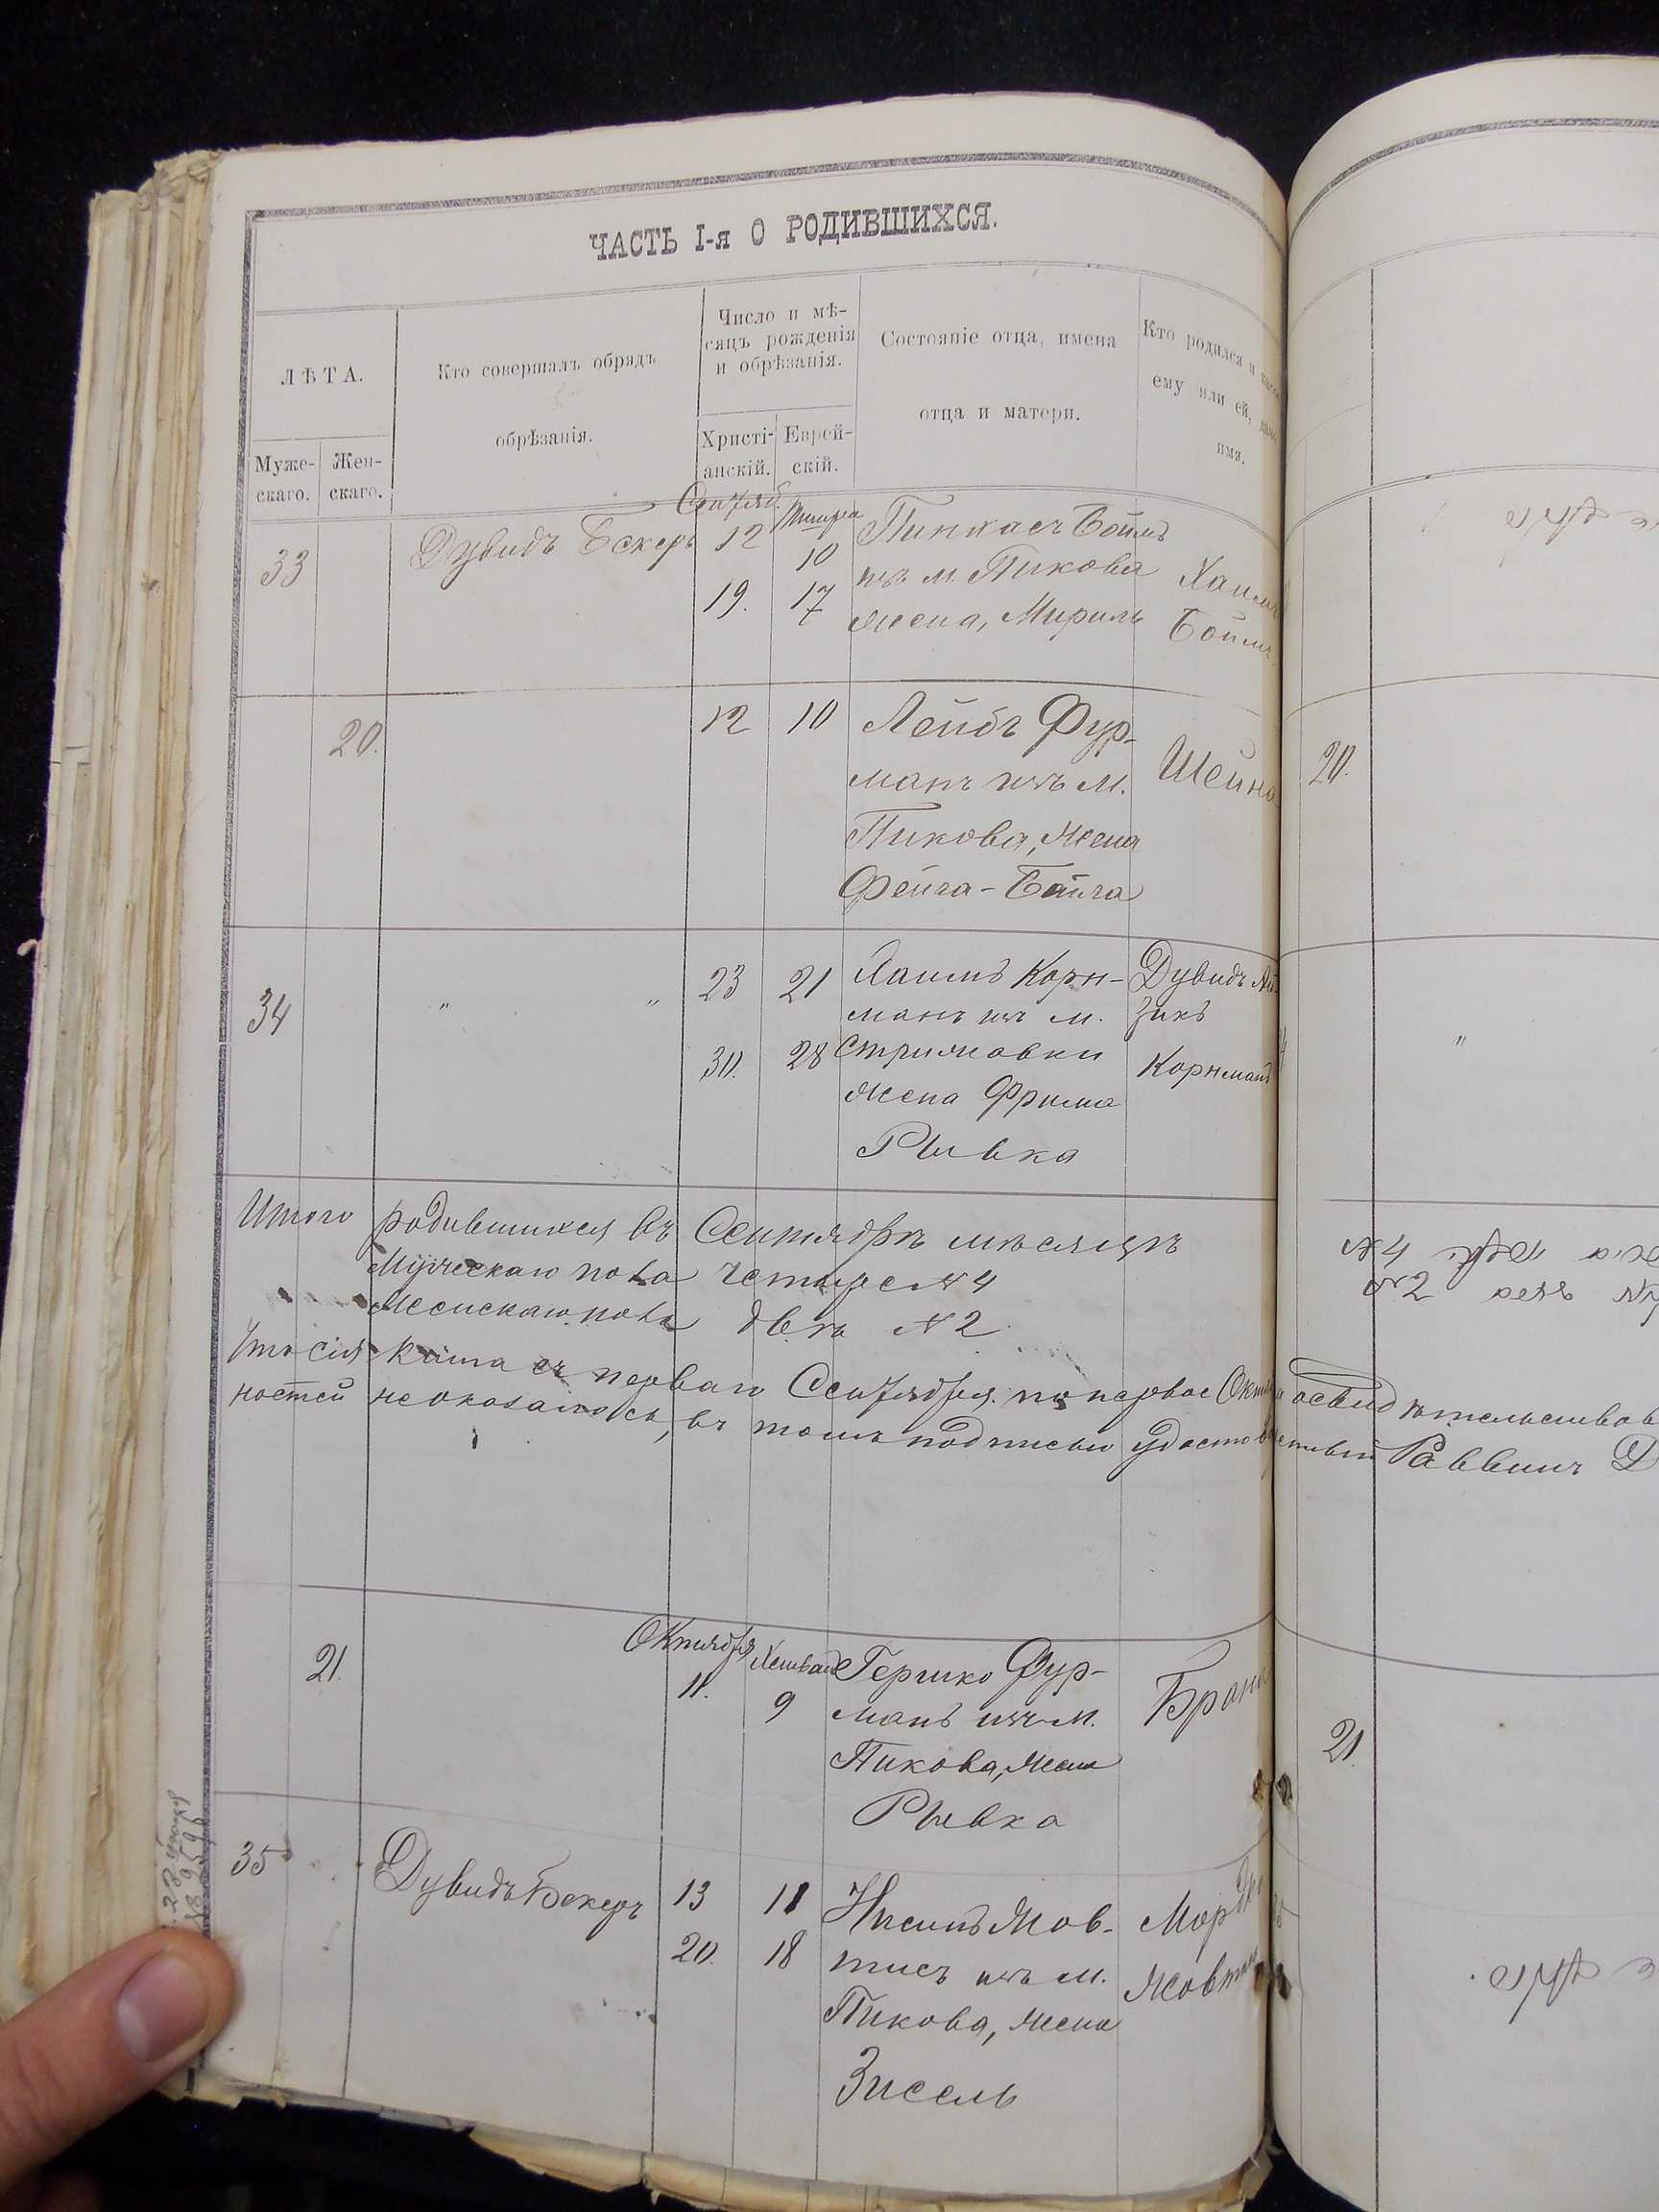 ЧАСТЬ I-я О РОДИВШИХСЯ.
ЛѢТА.
Муже-
скаго.
Жен-
скаго.
Кто совершалъ обрядъ
обрѣзанія.
Число и мѣ-
сяцъ рожденія
и обрѣзанія.
Христі-
анскій.
Еврей-
скій.
Состояніе отца, имена
отца и матери.
Кто родился и
ему или ей, дано
имя.
33
Дувидъ Бекеръ
Сентяб.
12
19.
Тишра
10
17
Пинхасъ Боймъ
изъ м. Пикова
жена, Мириль
Хаимъ
Боймъ
20.
12
10
Лейбъ Фур-
манъ изъ м.
Пикова, жена
Фейга-Байла
Шейна
20.
34
" "
23
30.
21
28
Хаимъ Корн-
манъ изъ м.
Стрижовки
жена Фрима
Рывка
Дувидъ Ай-
зикъ
Корнманъ
"
Итого родившихся въ Сентябрѣ мѣсяцѣ
Мужескаго пола четыре № 4
Женскаго пола двѣ № 2
Что сія книга съ перваго Сентября по первое Октяб освидѣтельствов
ностей не оказалось, въ томъ подписью удостов Раввинъ Д
21.
Октября
11.
Хешвана
9
Гершко Фур-
манъ изъ м.
Пикова, жена
Рывка
Брана
21.
35
Дувидъ Бекеръ
13
20.
11
18
Нисинъ Жов-
тисъ изъ м.
Пикова, жена
Зисель
Мордко
Жовтис